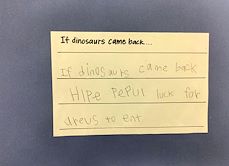 If dinosaurs came back....
If dinosaurs came back
Hipe pepul luck for
dreus to ent